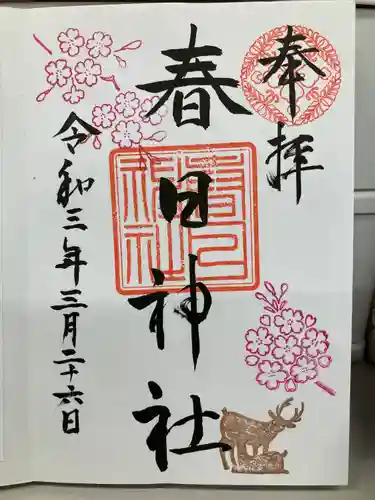 奉拝
春日神社
春日神社
令和三年三月二十六日